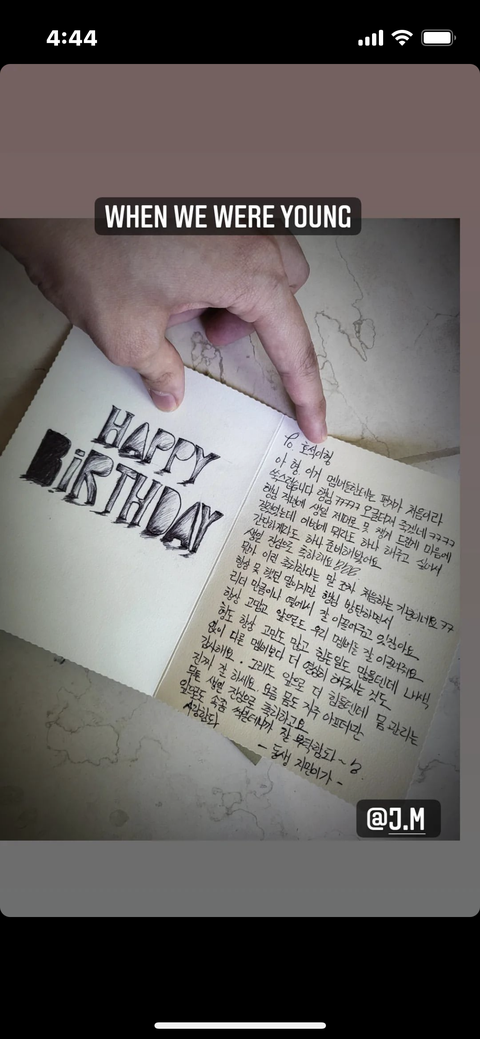 4:44
WHEN WE WERE YOUNG
HAPPY
BiRTHDAY
To 호석이형
아 형 이거 멤버한테는 편지가 처음이라
쑥스럽습니다 형님 ㅋㅋㅋㅋ 오글거려 죽겠네 ㅋㅋㅋㅋ
형님 저번에 생일 제대로 못 챙겨 드린게 마음에
걸렸었는데 이번에 뭐라도 하나 해주고 싶어서
간단하게라도 하나 준비해봤어요
생일 진심으로 축하해요
뭔가 이런 축하한다는 말 조차 처음하는 기분이네요 ㅋㅋ
항상 못 했던 말이지만 형님 방탄하면서
리더 만큼이나 옆에서 잘 이끌어주고 있잖아요
항상 고맙고 앞으로도 우리 멤버들 잘 이끌어줘요
형도 항상 고민도 많고 힘든일도 많을텐데 내색
없이 다른 멤버보다 더 열심히 해주시는 것도
감사해요. 그리고 앞으로 더 힘들텐데 몸 관리는
진짜 잘 하세요. 요즘 몸도 자주 아프더만
무튼 생일 진심으로 축하하고요
앞으로도 잘 부탁함다~
사랑함다
- 동생 지민이가 -
@J.M